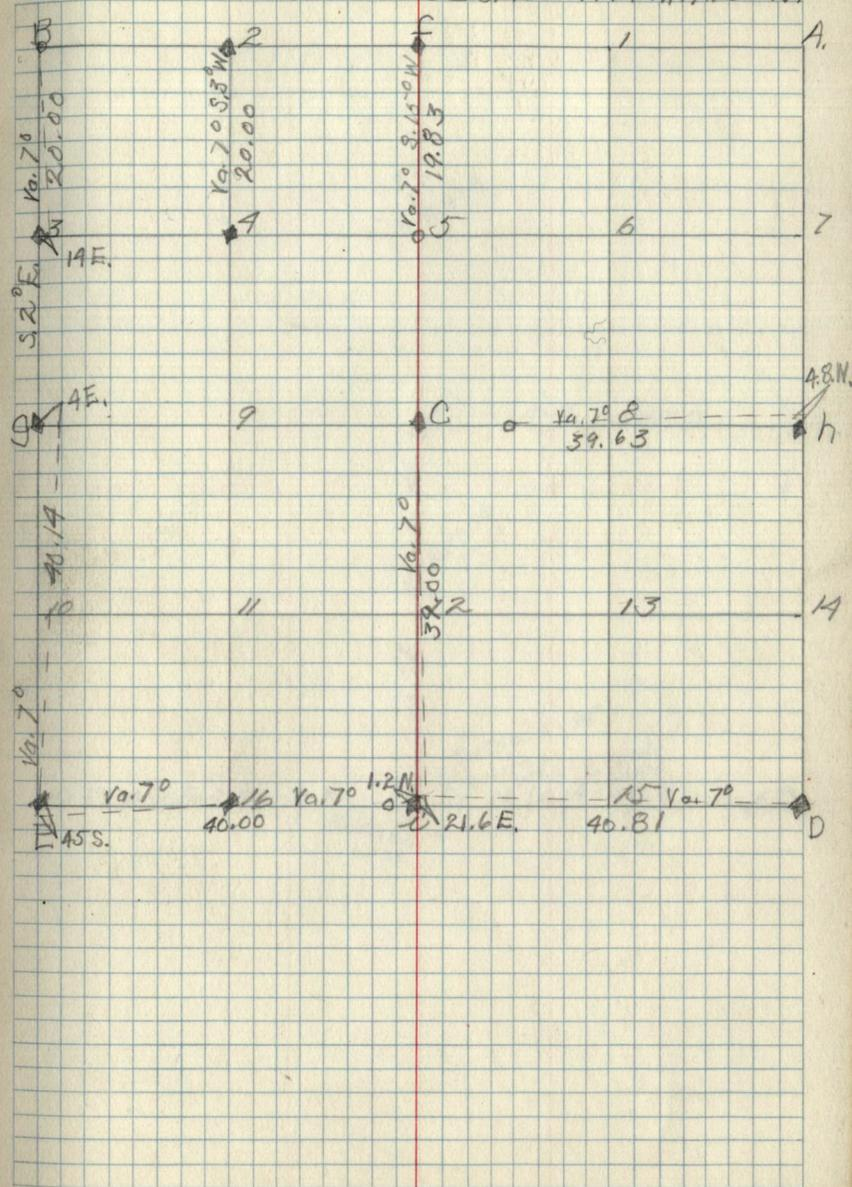 B 2 F 1 A.
Va. 7° 20.00
Va. 7° S.3°W 20.00
Va. 7° S.15°W 19.83
3 4 5 6 7
14E.
S.2°E.
4.8.N.
4E.
G 9 C Va. 7° 8 h
39.63
40.14
Va. 7°
39.00
10 11 12 13 14
Va. 7°
Va. 7° 16 Va. 7° 1.2N. 15 Va. 7°
45S. 40.00 i 21.6E. 40.81 D